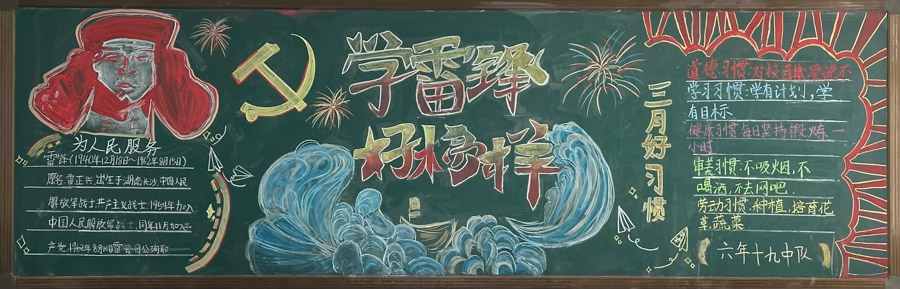 为人民服务
雷锋(1940年12月18日~1962年8月15日)
原名雷正兴,出生于湖南长沙,中国人民
解放军战士共产主义战士,1954年加入
中国人民解放军战士,同年11月加入
产党,1962年8月 因公殉职
学雷锋
好榜样
三月好习惯
道德习惯:对校园 说不
学习习惯:学有计划,学
有目标
健康习惯 每日坚持锻炼一
小时
审美习惯:不吸烟,不
喝酒,不去网吧.
劳动习惯:种植,培育花
草,蔬菜
六年十九中队